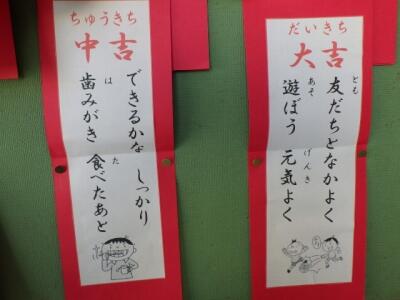 だいきち
大吉
友だちとなかよく
とも
遊ぼう 元気よく
あそ げんき
ちゅうきち
中吉
できるかな しっかり
歯みがき 食べたあと
は た